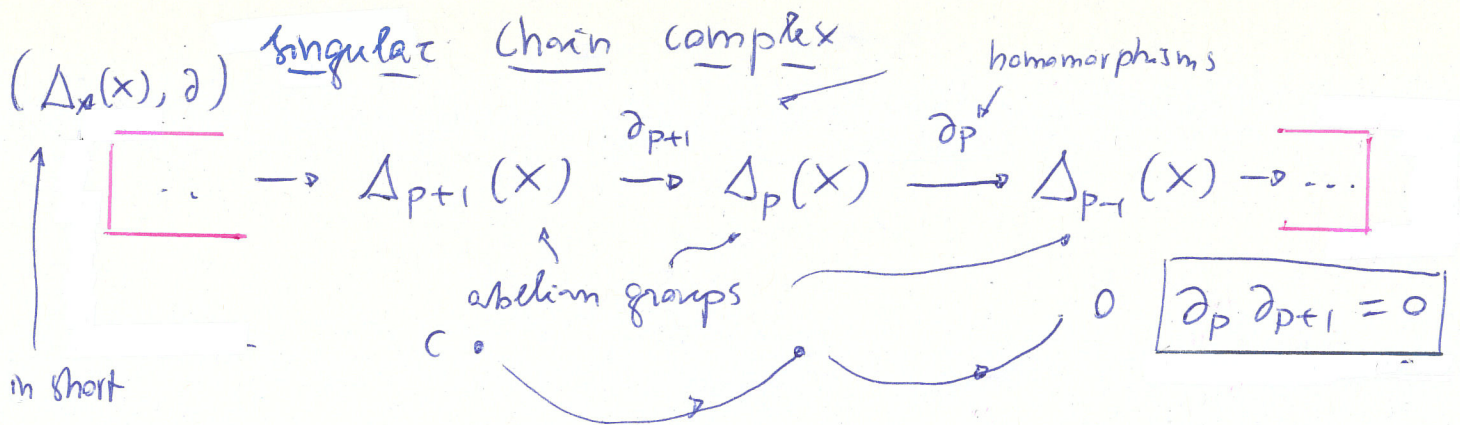 singular chain complex
(Δ_*(X), ∂)
homomorphisms
∂_{p+1} ∂_p
.. → Δ_{p+1}(X) → Δ_p(X) → Δ_{p-1}(X) → ...
abelian groups
0 ∂_p ∂_{p+1} = 0
c
in short